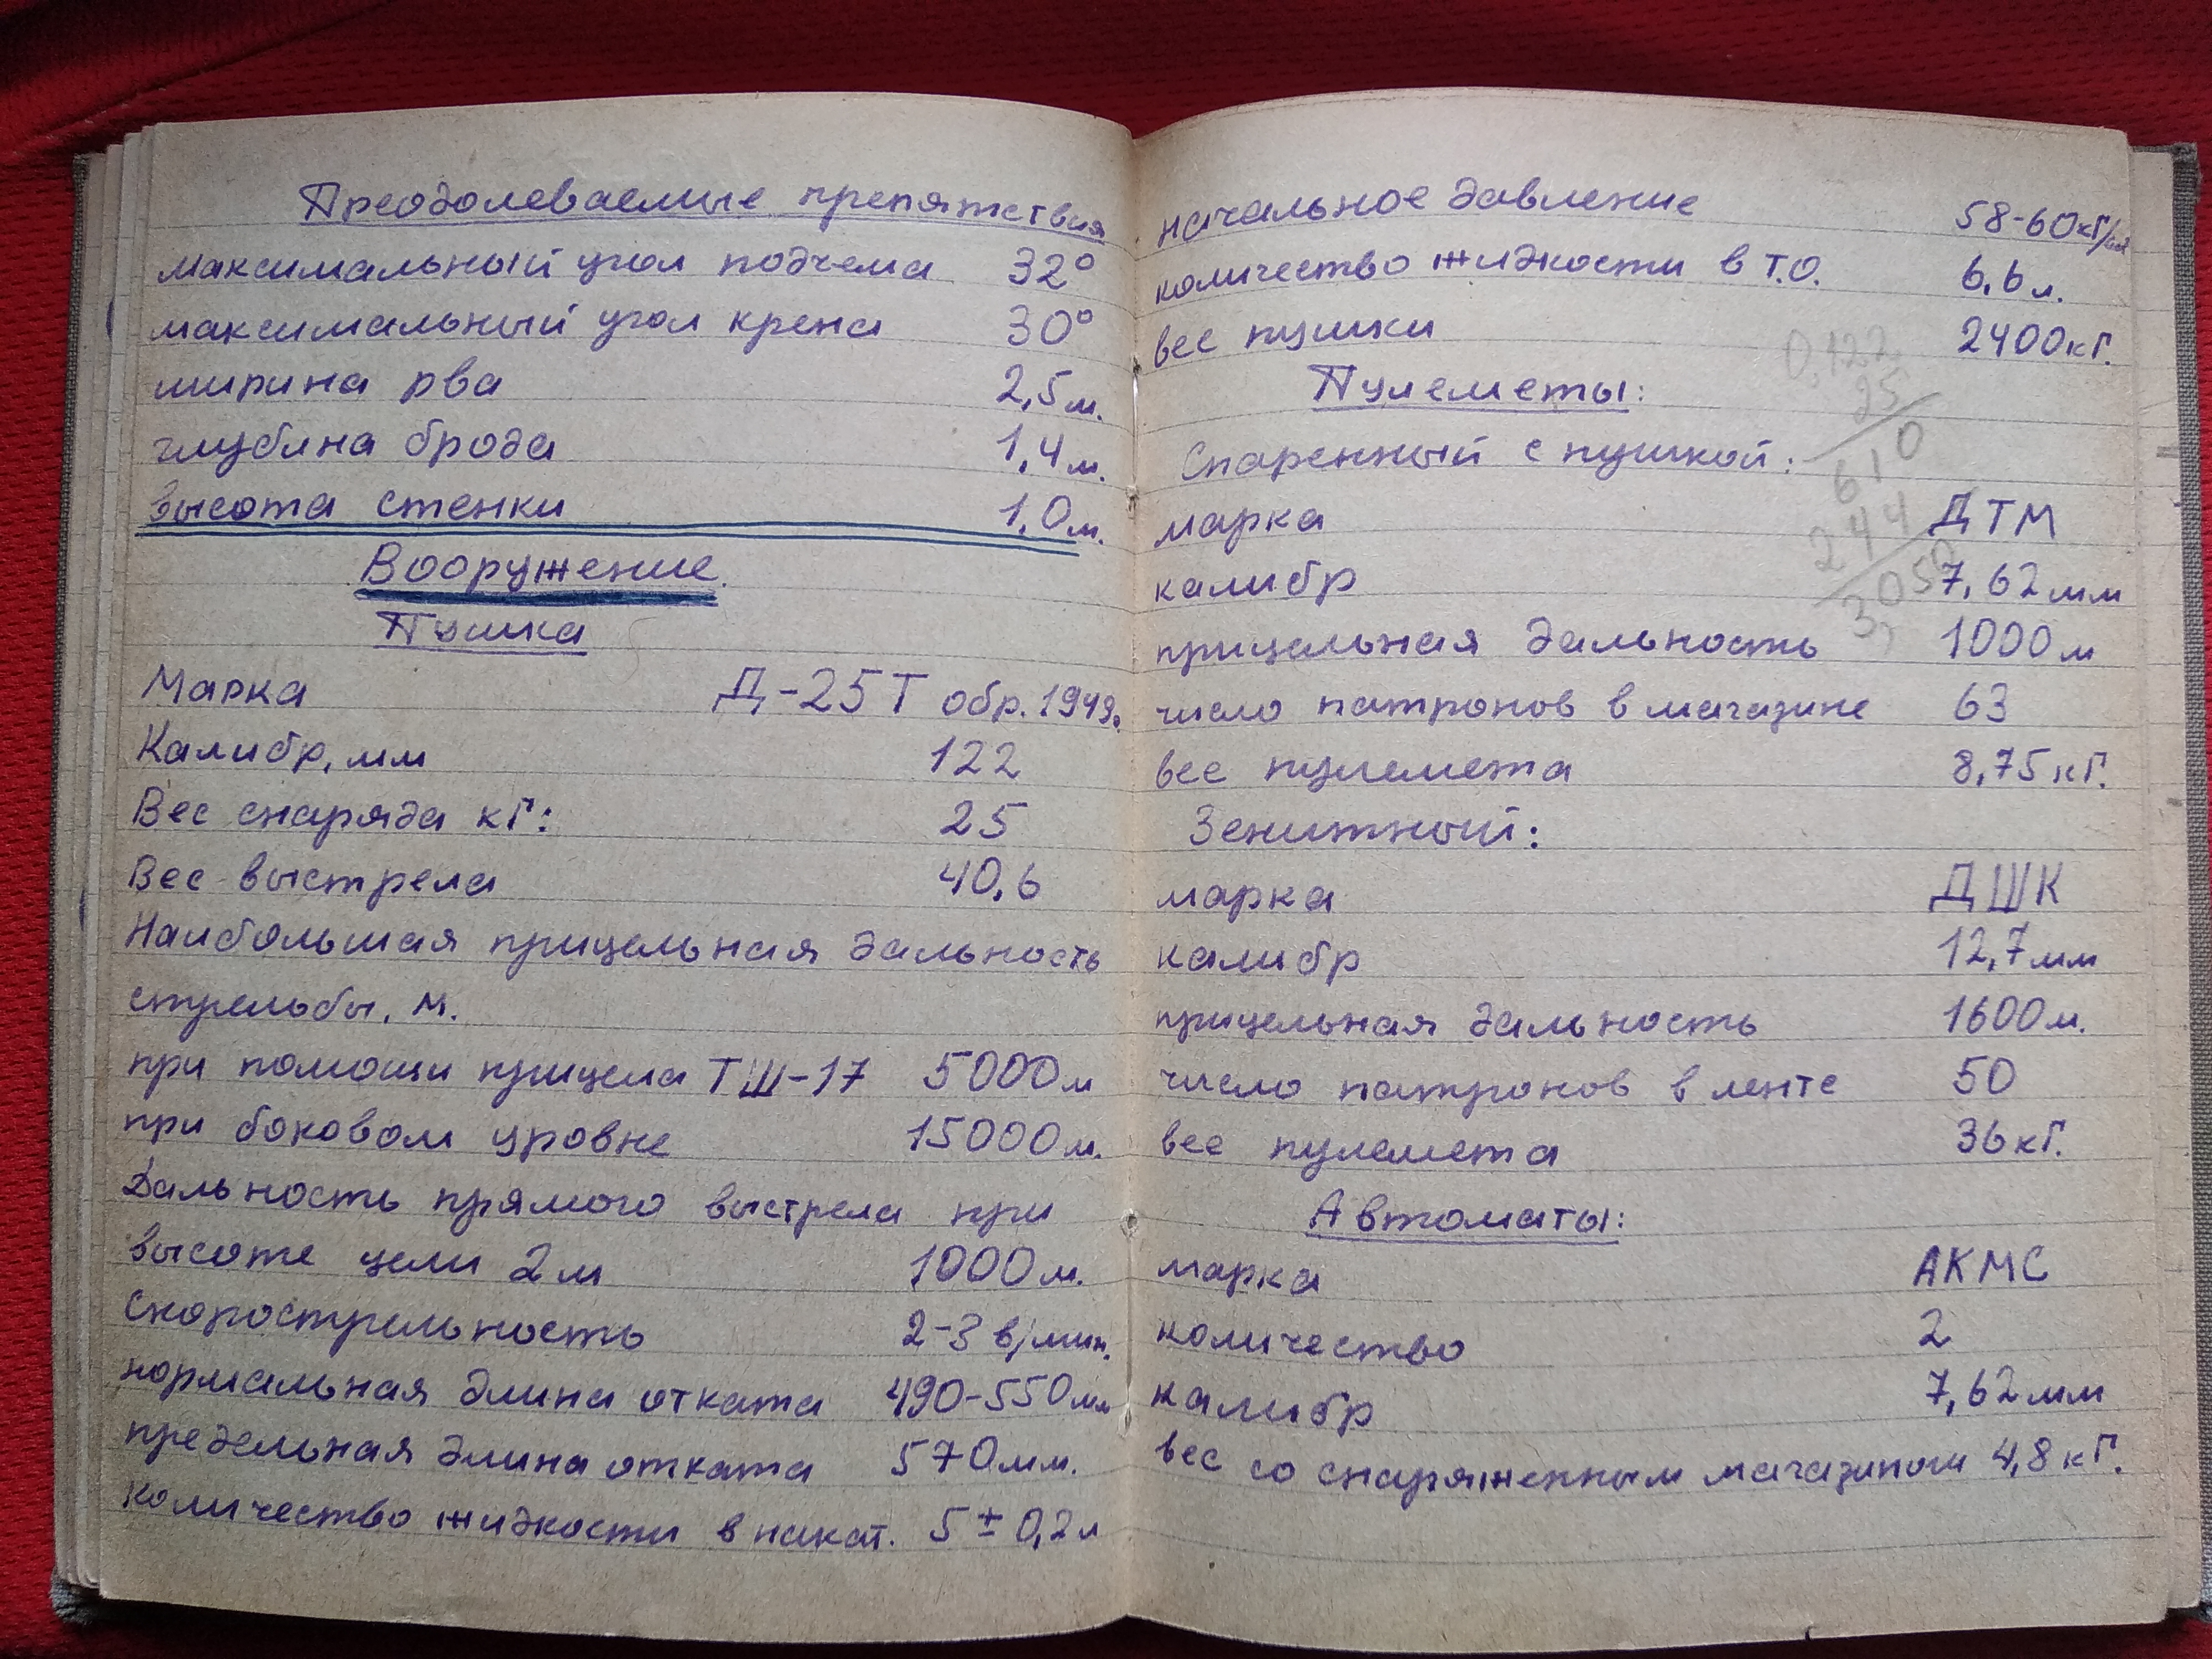 Преодолеваемые препятствия
максимальный угол подъема 32°
максимальный угол крена 30°
ширина рва 2,5 м.
глубина брода 1,4 м.
высота стенки 1,0 м.
Вооружение.
Пушка
Марка Д-25Т обр. 1943г.
Калибр, мм 122
Вес снаряда кГ: 25
Вес выстрела 40,6
Наибольшая прицельная дальность
стрельбы, м.
при помощи прицела ТШ-17 5000 м
при боковом уровне 15000 м.
Дальность прямого выстрела при
высоте цели 2 м 1000 м.
Скорострельность 2-3 в/мин.
нормальная длина отката 490-550 мм
предельная длина отката 570 мм.
количество жидкости в накат. 5 ± 0,2 л
начальное давление 58-60 кГ/см2
количество жидкости в Т.О. 6,6 л.
вес пушки 2400 кГ.
0,122
25
610
244
3,050
Пулеметы:
Спаренный с пушкой:
марка ДТМ
калибр 7,62 мм
прицельная дальность 1000 м
число патронов в магазине 63
вес пулемета 8,75 кГ.
Зенитный:
марка ДШК
калибр 12,7 мм
прицельная дальность 1600 м.
число патронов в ленте 50
вес пулемета 36 кГ.
Автоматы:
марка АКМС
количество 2
калибр 7,62 мм
вес со снаряженным магазином 4,8 кГ.